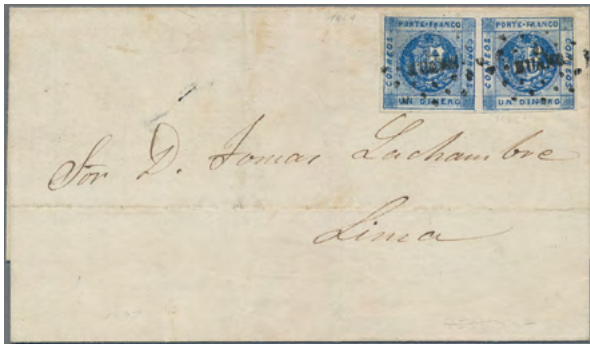 1864
PORTE-FRANCO
CORREOS
CORREOS
UN DINERO
PORTE-FRANCO
CORREOS
CORREOS
UN DINERO
Sor D. Tomas Lachambre
Lima